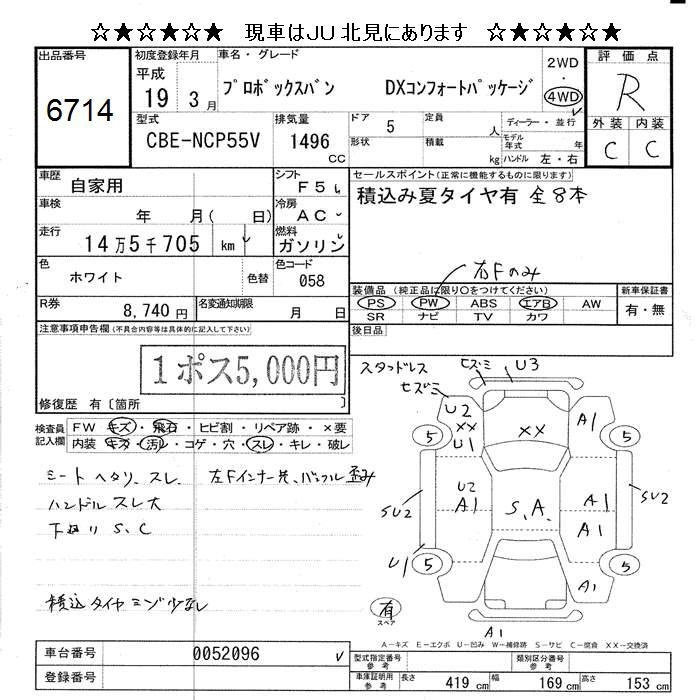 ☆★☆★☆★ 現車はJU北見にあります ☆★☆★☆★
出品番号 6714
初度登録年月 平成 19 3月
車名・グレード プロボックスバン DXコンフォートパッケージ
2WD・4WD
評価点 R
外装 内装
C C
型式 CBE-NCP55V
排気量 1496 CC
ドア 5 定員 人
形状 積載 kg
ディーラー・並行
モデル年式 年
ハンドル 左・右
車歴 自家用
シフト F5
車検 年 月( 日)
冷房 AC
走行 14万5千705 km
燃料 ガソリン
色 ホワイト 色替
色コード 058
R券 8,740円
名変通知期限 月 日
セールスポイント(正常に機能するものに限ります)
積込み夏タイヤ有 全8本
右Fのみ
装備品 (純正品に限り○をつけてください)
PS PW ABS エアB AW
SR ナビ TV カワ
新車保証書 有・無
後日品
注意事項申告欄(不具合内容等は具体的に記入して下さい)
1ポス5,000円
修復歴 有〔箇所 〕
検査員記入欄
FW キズ・飛石・ヒビ割・リペア跡・×要
内装 キズ・汚・コゲ・穴・スレ・キレ・破レ
シートヘタリ、スレ
ハンドルスレ大
下回りS、C
積込タイヤミゾ少なし
左Fインナー欠、バンパー歪み
スタッドレス
セズミ セズミ U3
U2 XX U1 XX A1
5 5
U2 A1 S.A. A1 A1
SU2 SU2
U1 5 5
A1
A1
有 スペア
A-キズ E-エクボ U-凹み W-補修跡 S-サビ C-腐食 XX-交換済
車台番号 0052096
登録番号
型式指定番号 参考
類別区分番号 参考
車庫証明記載用 参考 長さ 419cm 幅 169cm 高さ 153cm